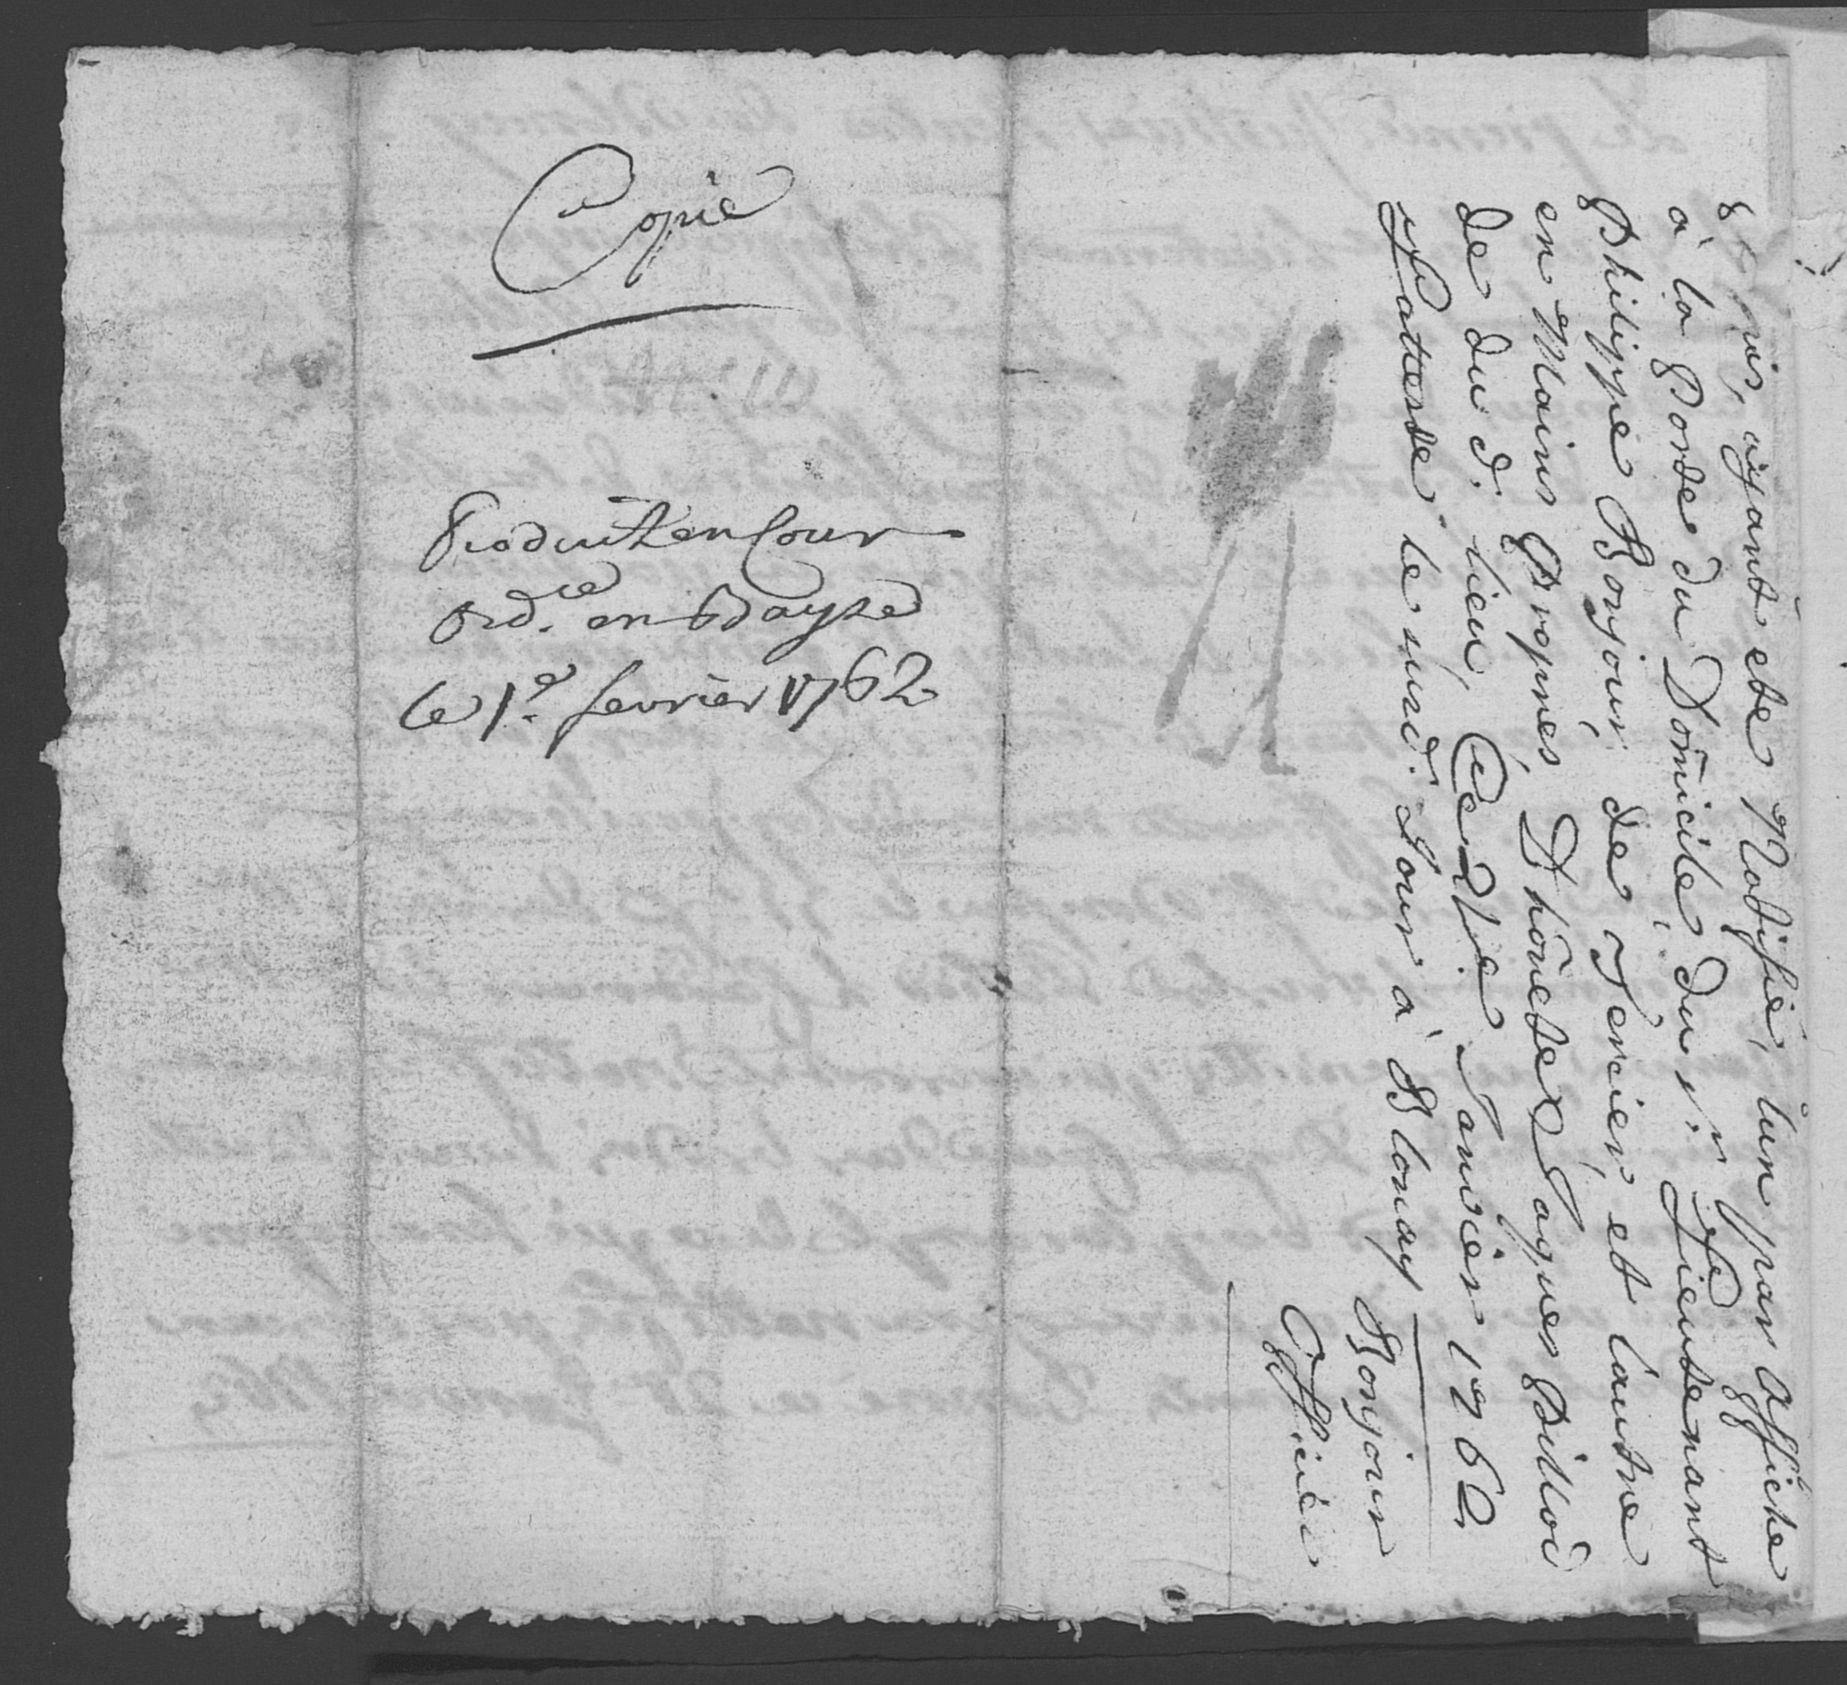 Copie
Produit en Cour
Ord.ce en
le 1.e fevrier 1762.
ayant ete Notifié, lun par affiche
à la Porte du Domicile, du s.r Lieutenant
Philippe Bonjour, de Tercier, et lautre
en Mains Propres, D'honetex Jaques Pilliod
de du d. lieu, Ce 29.e Janvier 1762.
J'atteste le susd. Jour à Blonay
Bonjour
Officier